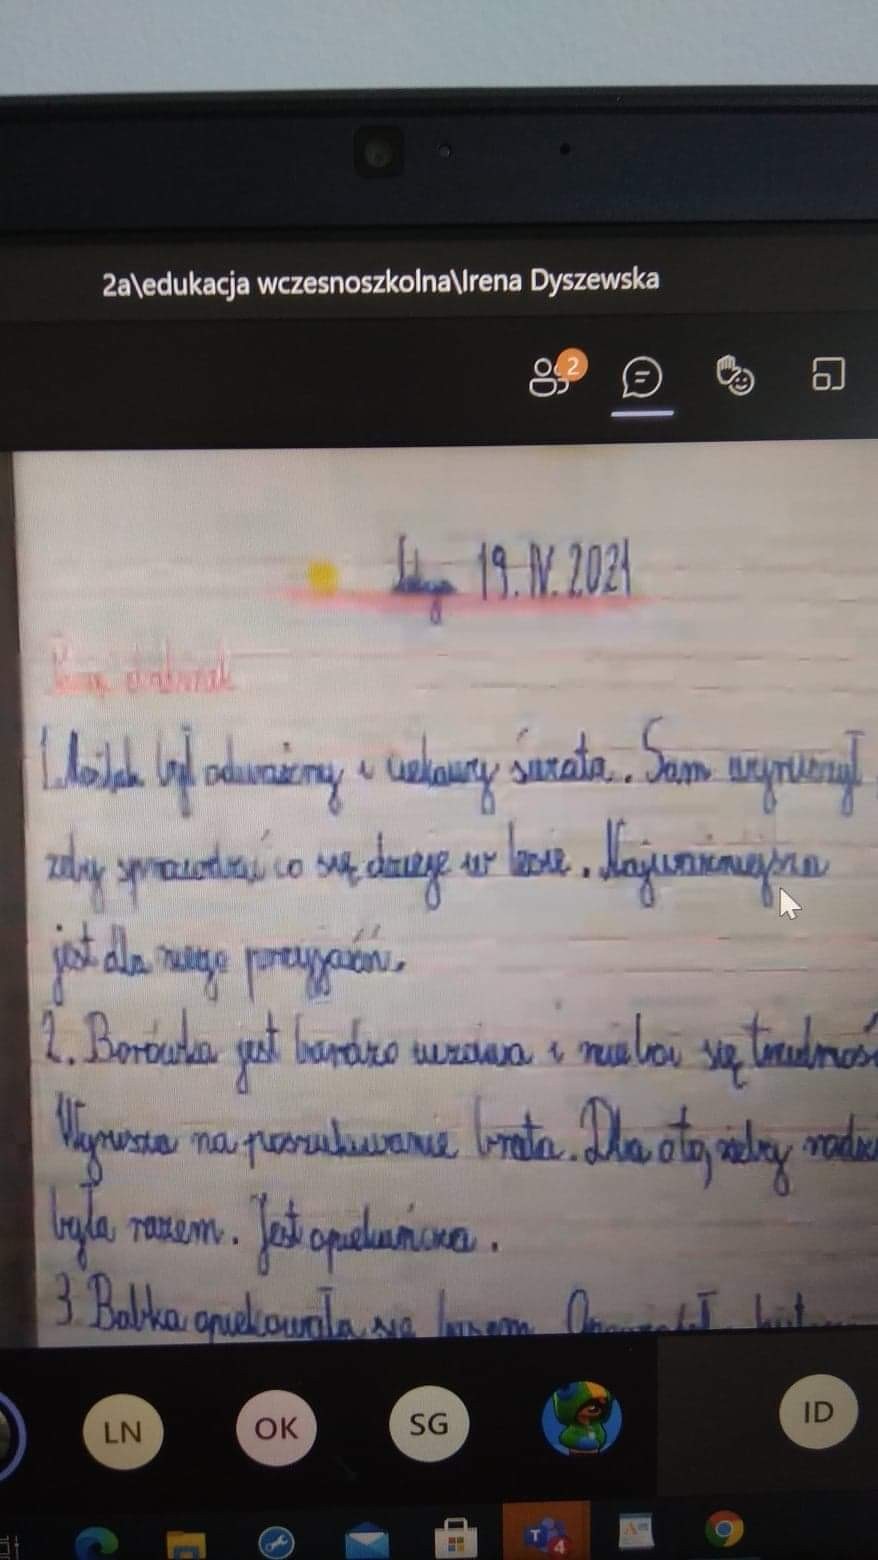 2a\edukacja wczesnoszkolna\Irena Dyszewska
2
19.IV.2021
był odważny i ciekawy świata. Sam wyruszył
żeby sprawdzić co się dzieje w lesie. Najważniejsza
jest dla niego przyjaźń.
2. Borówka jest bardzo i nie boi się trudnoś
Wyrusza na poszukiwanie brata. Dba o to, żeby rodzi
była razem. Jest opiekuńcza.
3. Babka opiekowała się lasem.
LN OK SG ID
T 4